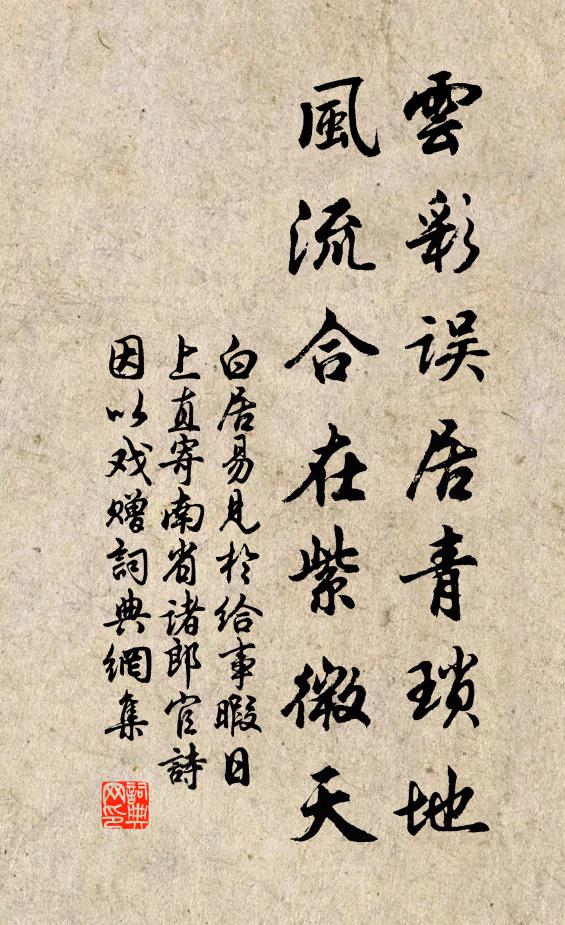 雲彩误居青瑣地
風流合在紫微天
白居易見於給事暇日
上直寄南省诸郎官詩
因以戏赠詞典網集
詞典
网印